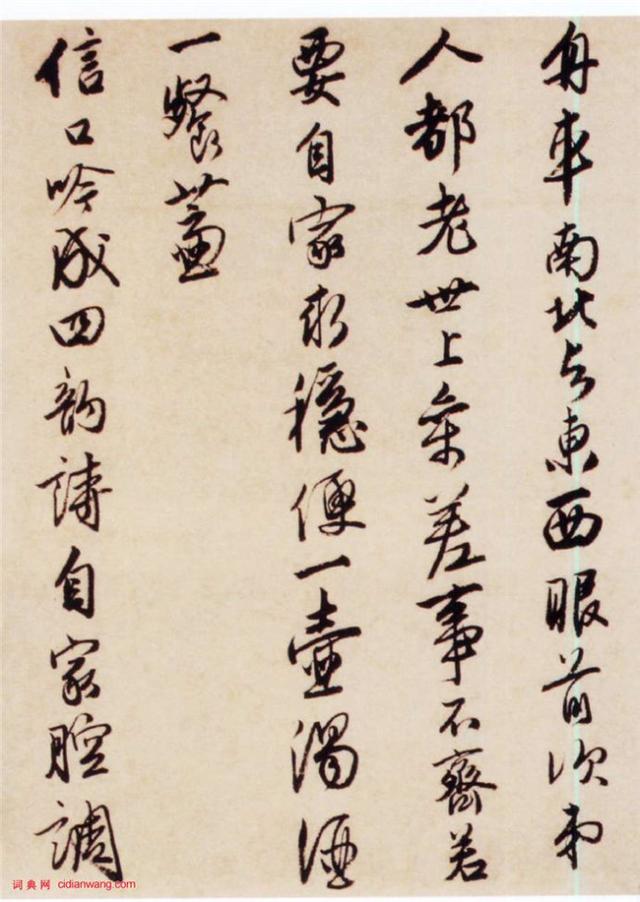 舟车南北与东西眼前次第
人都老世上参差事不齐若
要自家求稳便一壶浊酒
一餐虀
信口吟成四韵诗自家腔调
词典网 cidianwang.com